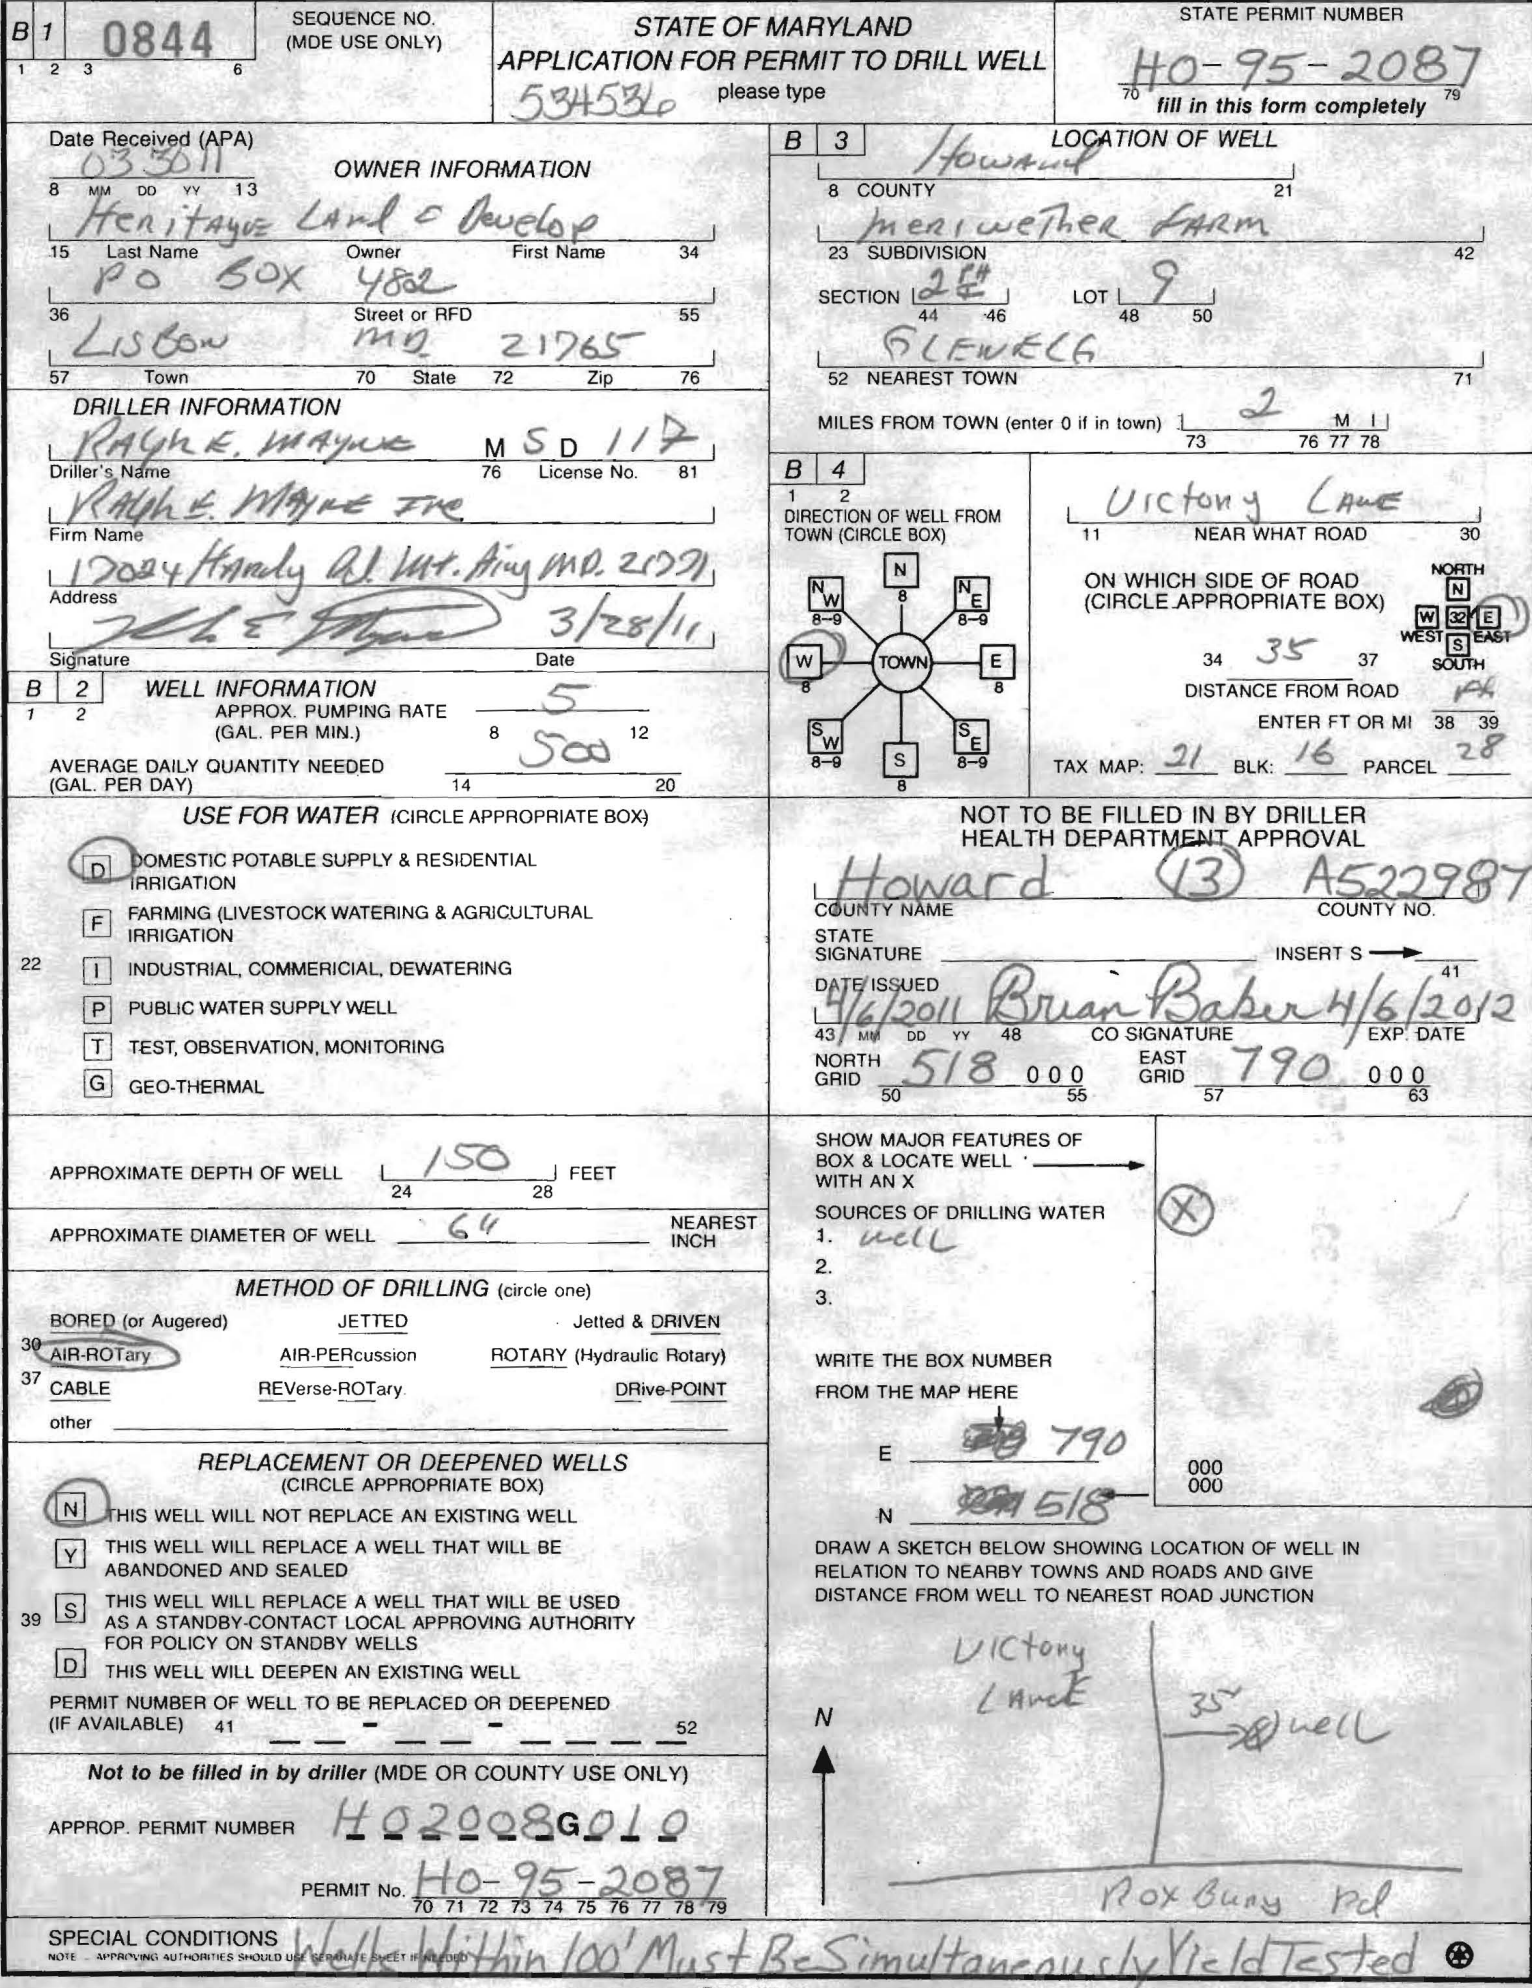 B 1 0844
1 2 3 6
SEQUENCE NO.
(MDE USE ONLY)
STATE OF MARYLAND
APPLICATION FOR PERMIT TO DRILL WELL
534536 please type
STATE PERMIT NUMBER
HO-95-2087
70 79
fill in this form completely
Date Received (APA)
033011
8 MM DD YY 13
OWNER INFORMATION
Heritayve Land & Develop
15 Last Name Owner First Name 34
PO BOX 4802
36 Street or RFD 55
LISBON MD. 21765
57 Town 70 State 72 Zip 76
DRILLER INFORMATION
RALph E. MAYNE M S D 117
Driller's Name 76 License No. 81
RALph E. MAYNE Inc
Firm Name
17024 Hardy Rd. Mt. Airy MD. 21771
Address
3/28/11
Signature Date
B 2 WELL INFORMATION
1 2
APPROX. PUMPING RATE 5
(GAL. PER MIN.) 8 12
AVERAGE DAILY QUANTITY NEEDED 500
(GAL. PER DAY) 14 20
USE FOR WATER (CIRCLE APPROPRIATE BOX)
D DOMESTIC POTABLE SUPPLY & RESIDENTIAL
IRRIGATION
F FARMING (LIVESTOCK WATERING & AGRICULTURAL
IRRIGATION
22 I INDUSTRIAL, COMMERICIAL, DEWATERING
P PUBLIC WATER SUPPLY WELL
T TEST, OBSERVATION, MONITORING
G GEO-THERMAL
APPROXIMATE DEPTH OF WELL 150 FEET
24 28
APPROXIMATE DIAMETER OF WELL NEAREST
INCH
METHOD OF DRILLING (circle one)
BORED (or Augered) JETTED Jetted & DRIVEN
30 AIR-ROTary AIR-PERcussion ROTARY (Hydraulic Rotary)
37 CABLE REVerse-ROTary DRive-POINT
other
REPLACEMENT OR DEEPENED WELLS
(CIRCLE APPROPRIATE BOX)
N THIS WELL WILL NOT REPLACE AN EXISTING WELL
Y THIS WELL WILL REPLACE A WELL THAT WILL BE
ABANDONED AND SEALED
39 S THIS WELL WILL REPLACE A WELL THAT WILL BE USED
AS A STANDBY-CONTACT LOCAL APPROVING AUTHORITY
FOR POLICY ON STANDBY WELLS
D THIS WELL WILL DEEPEN AN EXISTING WELL
PERMIT NUMBER OF WELL TO BE REPLACED OR DEEPENED
(IF AVAILABLE) 41 - - 52
Not to be filled in by driller (MDE OR COUNTY USE ONLY)
APPROP. PERMIT NUMBER HO2008G010
PERMIT No. HO-95-2087
70 71 72 73 74 75 76 77 78 79
B 3 LOCATION OF WELL
Howard
8 COUNTY 21
Meriwether FARM
23 SUBDIVISION 42
SECTION 2 LOT 9
44 46 48 50
GLENELG
52 NEAREST TOWN 71
MILES FROM TOWN (enter 0 if in town) 2 M I
73 76 77 78
B 4
1 2
DIRECTION OF WELL FROM
TOWN (CIRCLE BOX)
N
8
NW NE
8-9 8-9
W TOWN E
8 8
SW SE
8-9 8-9
S
8
Victory Lane
11 NEAR WHAT ROAD 30
ON WHICH SIDE OF ROAD
(CIRCLE APPROPRIATE BOX)
NORTH
N
W 32 E
WEST EAST
S
SOUTH
34 35 37
DISTANCE FROM ROAD
ENTER FT OR MI 38 39
TAX MAP: 21 BLK: 16 PARCEL 28
NOT TO BE FILLED IN BY DRILLER
HEALTH DEPARTMENT APPROVAL
Howard 13 A522987
COUNTY NAME COUNTY NO.
STATE
SIGNATURE INSERT S
41
DATE ISSUED
4/6/2011 Brian Baker 4/6/2012
43 MM DD YY 48 CO SIGNATURE EXP. DATE
NORTH
GRID 518 000
50 55
EAST
GRID 790 000
57 63
SHOW MAJOR FEATURES OF
BOX & LOCATE WELL
WITH AN X
X
SOURCES OF DRILLING WATER
1. well
2.
3.
WRITE THE BOX NUMBER
FROM THE MAP HERE
E 790
N 518
000
000
DRAW A SKETCH BELOW SHOWING LOCATION OF WELL IN
RELATION TO NEARBY TOWNS AND ROADS AND GIVE
DISTANCE FROM WELL TO NEAREST ROAD JUNCTION
Victory
Lane
35' well
N
Rox Bury Rd
SPECIAL CONDITIONS Wells Within 100' Must Be Simultaneously Yield Tested
NOTE - APPROVING AUTHORITIES SHOULD USE SEPARATE SHEET IF NEEDED